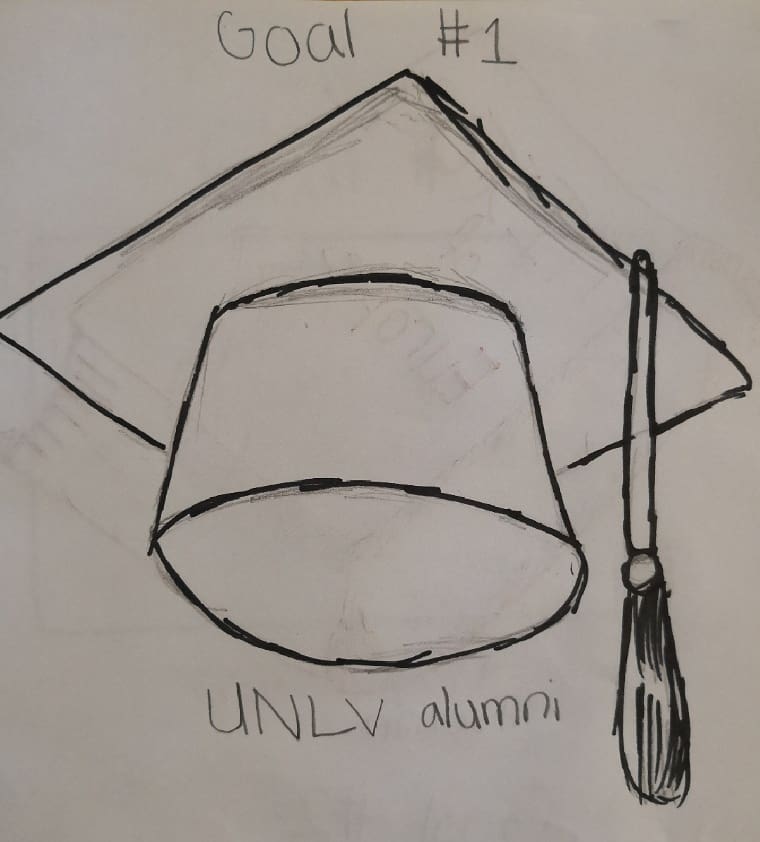 Goal #1
UNLV alumni